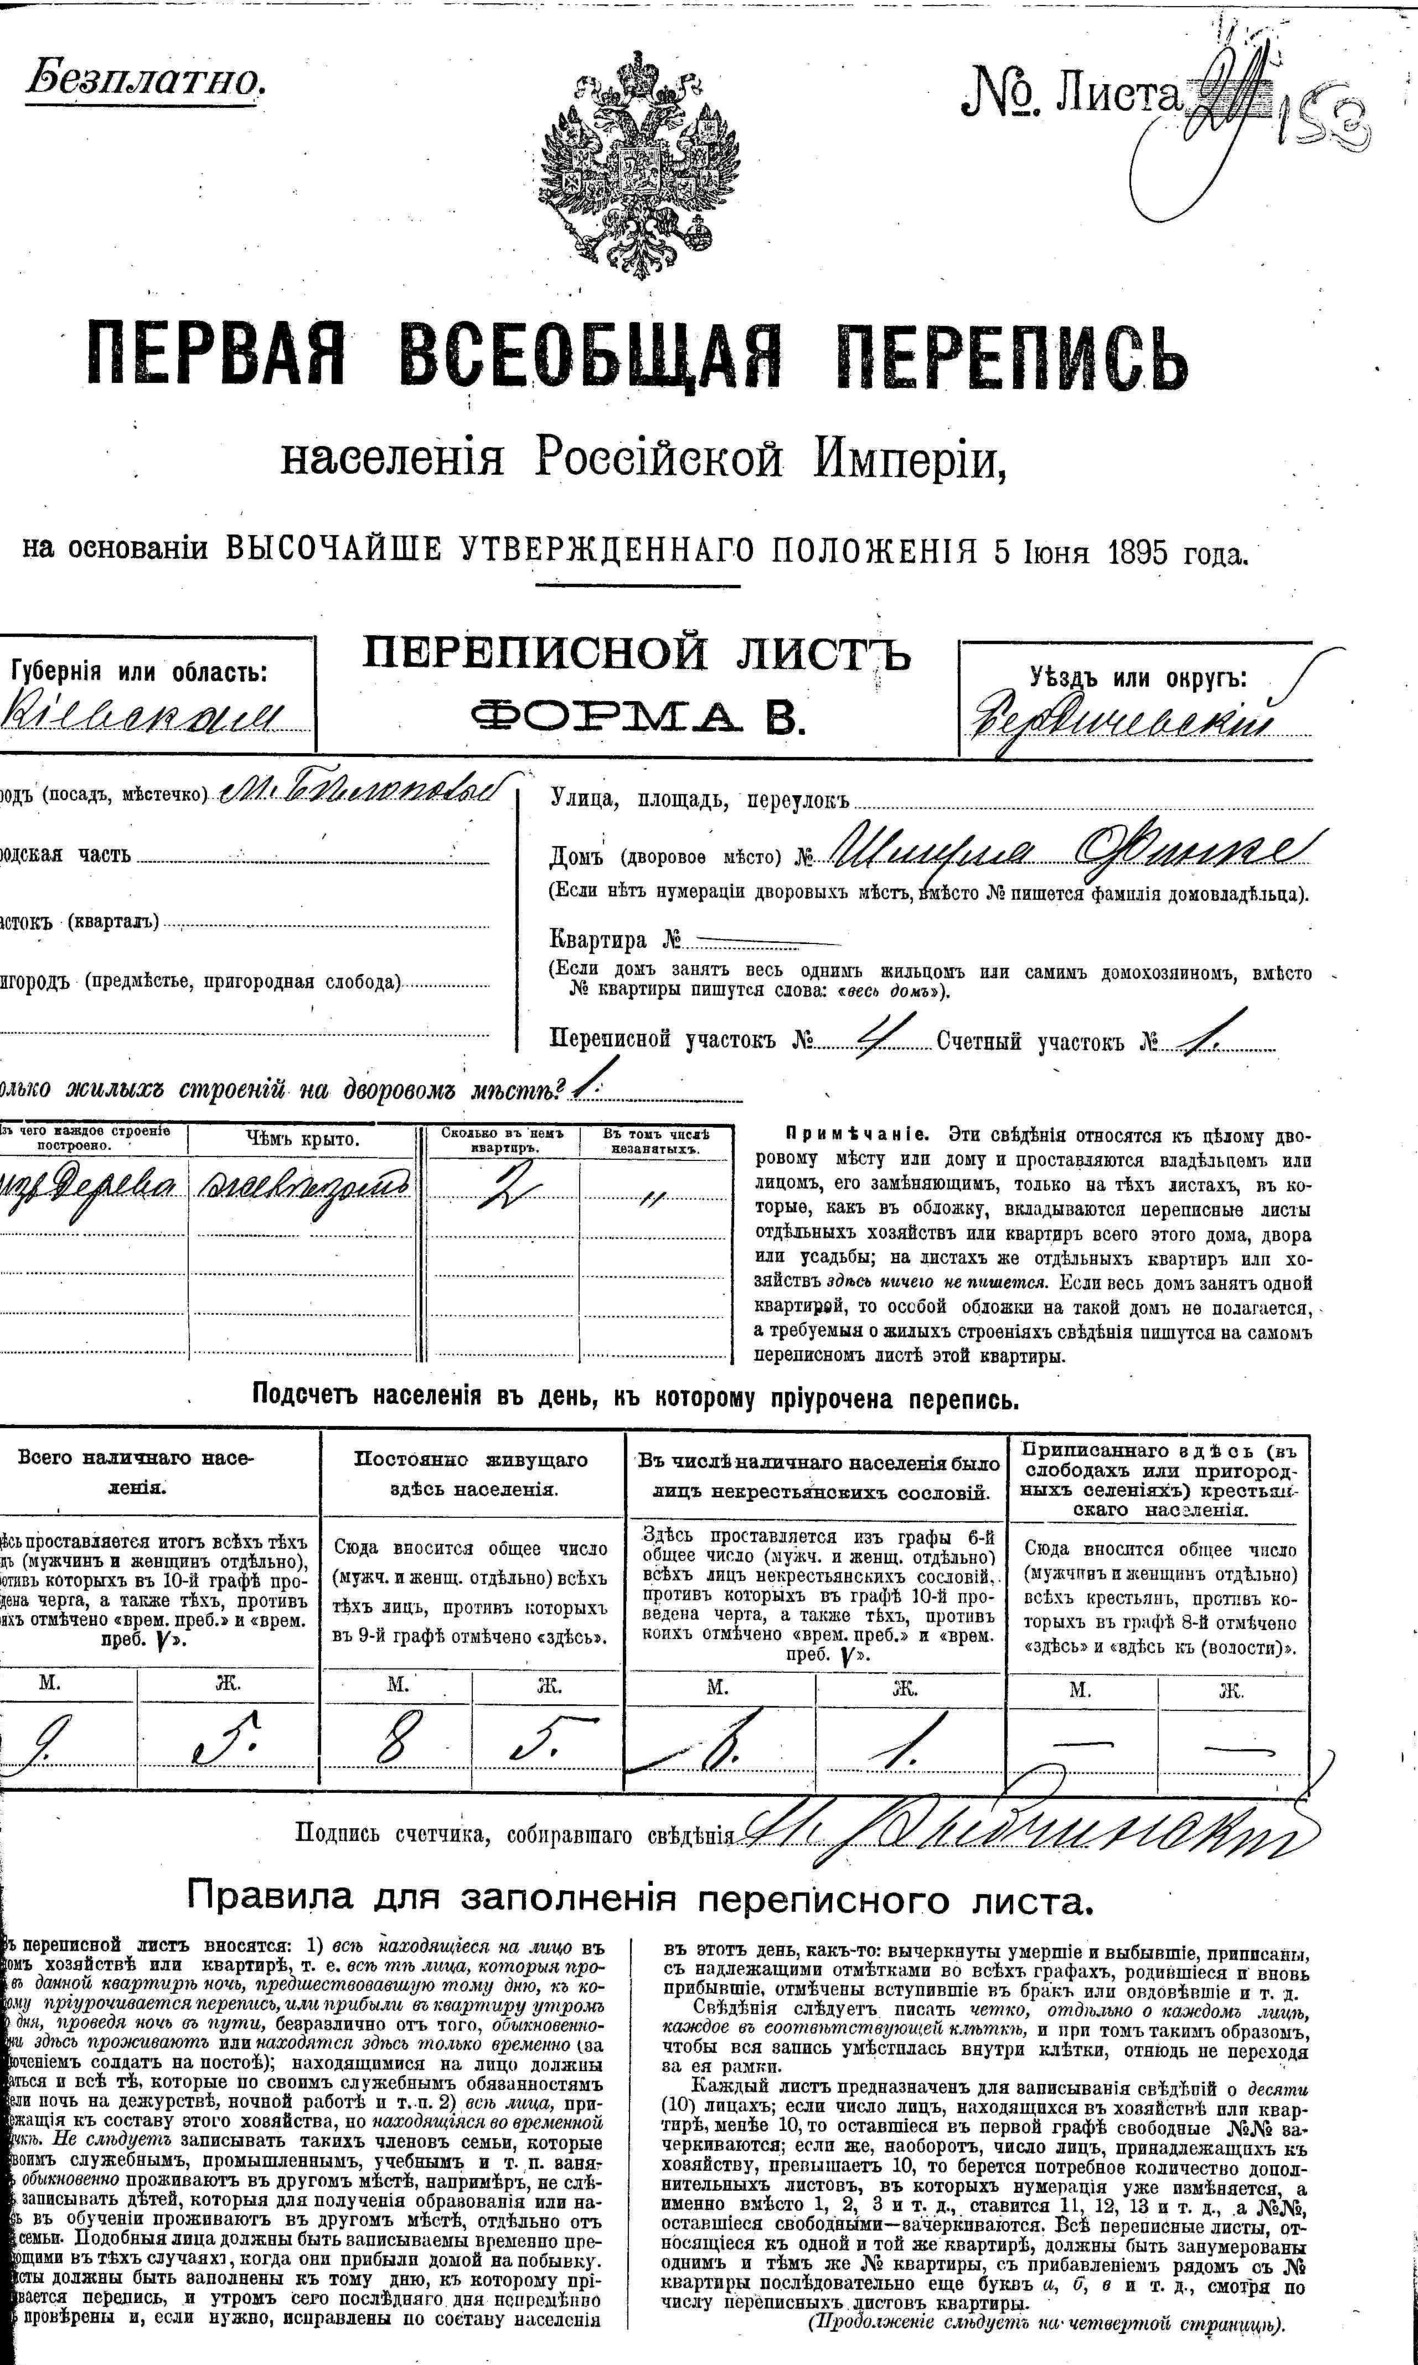 Безплатно.
№. Листа 153
ПЕРВАЯ ВСЕОБЩАЯ ПЕРЕПИСЬ
населенія Россійской Имперіи,
на основаніи ВЫСОЧАЙШЕ УТВЕРЖДЕННАГО ПОЛОЖЕНІЯ 5 Іюня 1895 года.
Губернія или область:
Кіевская
ПЕРЕПИСНОЙ ЛИСТЪ
ФОРМА В.
Уѣздъ или округъ:
Бердичевскій
(посадъ, мѣстечко) м. Бѣлополье
часть
(кварталъ)
(предмѣстье, пригородная слобода)
Улица, площадь, переулокъ
Домъ (дворовое мѣсто) № Шмуля
(Если нѣтъ нумераціи дворовыхъ мѣстъ, вмѣсто № пишется фамилія домовладѣльца).
Квартира №
(Если домъ занятъ весь однимъ жильцомъ или самимъ домохозяиномъ, вмѣсто
№ квартиры пишутся слова: «весь домъ»).
Переписной участокъ № 4 Счетный участокъ № 1.
жилыхъ строеній на дворовомъ мѣстѣ? 1.
чего каждое строеніе
построено.
Чѣмъ крыто.
Сколько въ немъ
квартиръ.
Въ томъ числѣ
незанятыхъ.
изъ дерева желѣзомъ 2 "
Примѣчаніе. Эти свѣдѣнія относятся къ цѣлому дво-
ровому мѣсту или дому и проставляются владѣльцемъ или
лицомъ, его замѣняющимъ, только на тѣхъ листахъ, въ ко-
торые, какъ въ обложку, вкладываются переписные листы
отдѣльныхъ хозяйствъ или квартиръ всего этого дома, двора
или усадьбы; на листахъ же отдѣльныхъ квартиръ или хо-
зяйствъ здѣсь ничего не пишется. Если весь домъ занятъ одной
квартирой, то особой обложки на такой домъ не полагается,
а требуемыя о жилыхъ строеніяхъ свѣдѣнія пишутся на самомъ
переписномъ листѣ этой квартиры.
Подсчетъ населенія въ день, къ которому пріурочена перепись.
Всего наличнаго насе-
ленія.
проставляется итогъ всѣхъ тѣхъ
(мужчинъ и женщинъ отдѣльно),
которыхъ въ 10-й графѣ про-
черта, а также тѣхъ, противъ
отмѣчено «врем. преб.» и «врем.
преб. V».
М. Ж.
9. 5.
Постоянно живущаго
здѣсь населенія.
Сюда вносится общее число
(мужч. и женщ. отдѣльно) всѣхъ
тѣхъ лицъ, противъ которыхъ
въ 9-й графѣ отмѣчено «здѣсь».
М. Ж.
8 5.
Въ числѣ наличнаго населенія было
лицъ некрестьянскихъ сословій.
Здѣсь проставляется изъ графы 6-й
общее число (мужч. и женщ. отдѣльно)
всѣхъ лицъ некрестьянскихъ сословій,
противъ которыхъ въ графѣ 10-й про-
ведена черта, а также тѣхъ, противъ
коихъ отмѣчено «врем. преб.» и «врем.
преб. V».
М. Ж.
1.
Приписаннаго здѣсь (въ
слободахъ или пригород-
ныхъ селеніяхъ) крестьян-
скаго населенія.
Сюда вносится общее число
(мужчинъ и женщинъ отдѣльно)
всѣхъ крестьянъ, противъ ко-
торыхъ въ графѣ 8-й отмѣчено
«здѣсь» и «здѣсь къ (волости)».
М. Ж.
— —
Подпись счетчика, собиравшаго свѣдѣнія
Правила для заполненія переписного листа.
переписной листъ вносятся: 1) всѣ находящіеся на лицо въ
хозяйствѣ или квартирѣ, т. е. всѣ тѣ лица, которыя про-
въ данной квартирѣ ночь, предшествовавшую тому дню, къ ко-
пріурочивается перепись, или прибыли въ квартиру утромъ
дня, проведя ночь въ пути, безразлично отъ того, обыкновенно-
здѣсь проживаютъ или находятся здѣсь только временно (за
солдатъ на постоѣ); находящимися на лицо должны
и всѣ тѣ, которые по своимъ служебнымъ обязанностямъ
ночь на дежурствѣ, ночной работѣ и т. п. 2) всѣ лица, при-
къ составу этого хозяйства, но находящіяся во временной
Не слѣдуетъ записывать такихъ членовъ семьи, которые
служебнымъ, промышленнымъ, учебнымъ и т. п. заня-
обыкновенно проживаютъ въ другомъ мѣстѣ, напримѣръ, не слѣ-
записывать дѣтей, которыя для полученія образованія или на-
въ обученіи проживаютъ въ другомъ мѣстѣ, отдѣльно отъ
семьи. Подобныя лица должны быть записываемы временно пре-
въ тѣхъ случаяхъ, когда они прибыли домой на побывку.
должны быть заполнены къ тому дню, къ которому прі-
перепись, и утромъ сего послѣдняго дня непремѣнно
провѣрены и, если нужно, исправлены по составу населенія
въ этотъ день, какъ-то: вычеркнуты умершіе и выбывшіе, приписаны,
съ надлежащими отмѣтками во всѣхъ графахъ, родившіеся и вновь
прибывшіе, отмѣчены вступившіе въ бракъ или овдовѣвшіе и т. д.
Свѣдѣнія слѣдуетъ писать четко, отдѣльно о каждомъ лицѣ,
каждое въ соотвѣтствующей клѣткѣ, и при томъ такимъ образомъ,
чтобы вся запись умѣстилась внутри клѣтки, отнюдь не переходя
за ея рамки.
Каждый листъ предназначенъ для записыванія свѣдѣній о десяти
(10) лицахъ; если число лицъ, находящихся въ хозяйствѣ или квар-
тирѣ, менѣе 10, то оставшіеся въ первой графѣ свободные №№ за-
черкиваются; если же, наоборотъ, число лицъ, принадлежащихъ къ
хозяйству, превышаетъ 10, то берется потребное количество допол-
нительныхъ листовъ, въ которыхъ нумерація уже измѣняется, а
именно вмѣсто 1, 2, 3 и т. д., ставится 11, 12, 13 и т. д., а №№,
оставшіеся свободными—зачеркиваются. Всѣ переписные листы, от-
носящіеся къ одной и той же квартирѣ, должны быть занумерованы
однимъ и тѣмъ же № квартиры, съ прибавленіемъ рядомъ съ №
квартиры послѣдовательно еще буквъ а, б, в и т. д., смотря по
числу переписныхъ листовъ квартиры.
(Продолженіе слѣдуетъ на четвертой страницѣ).